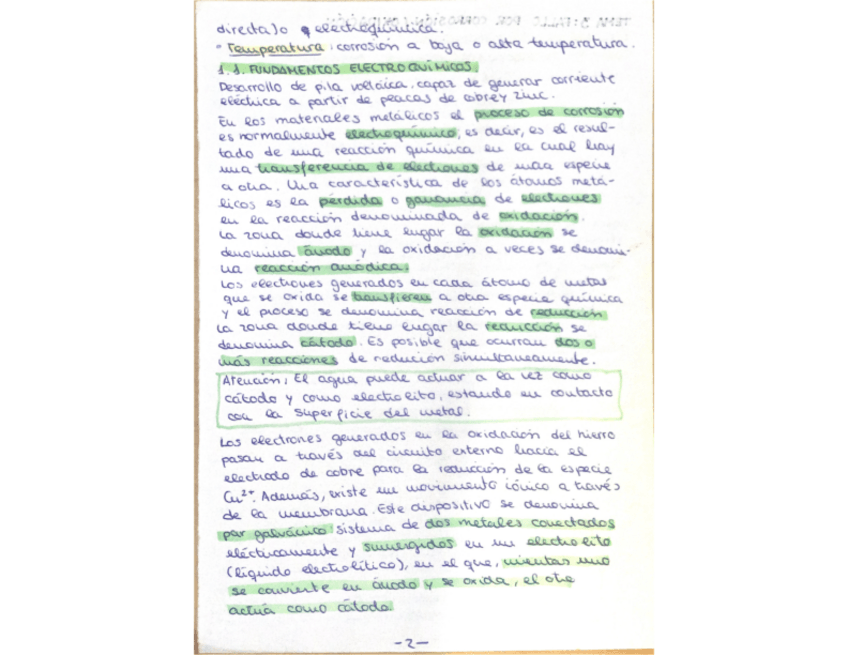 directa) o electroquímica.
· Temperatura: corrosión a baja o alta temperatura.
1.1. FUNDAMENTOS ELECTROQUÍMICOS
Desarrollo de pila voltáica, capaz de generar corriente
eléctrica a partir de placas de cobre y zinc.
En los materiales metálicos el proceso de corrosión
es normalmente electroquímico, es decir, es el resul-
tado de una reacción química en la cual hay
una transferencia de electrones de una especie
a otra. Una característica de los átomos metá-
licos es la pérdida o ganancia de electrones
en la reacción denominada de oxidación.
La zona donde tiene lugar la oxidación se
denomina ánodo y la oxidación a veces se denomi-
na reacción anódica.
Los electrones generados en cada átomo de metal
que se oxida se transfieren a otra especie química
y el proceso se denomina reacción de reducción
La zona donde tiene lugar la reducción se
denomina cátodo. Es posible que ocurran dos o
más reacciones de reducción simultaneamente.
Atención; El agua puede actuar a la vez como
cátodo y como electrolito, estando en contacto
con la superficie del metal.
Los electrones generados en la oxidación del hierro
pasan a través del circuito externo hacia el
electrodo de cobre para la reducción de la especie
Cu²⁺. Además, existe un movimiento iónico a través
de la membrana. Este dispositivo se denomina
par galvánico: sistema de dos metales conectados
eléctricamente y sumergidos en un electrolito
(líquido electrolítico), en el que, mientras uno
se convierte en ánodo y se oxida, el otro
actúa como cátodo.
-2-